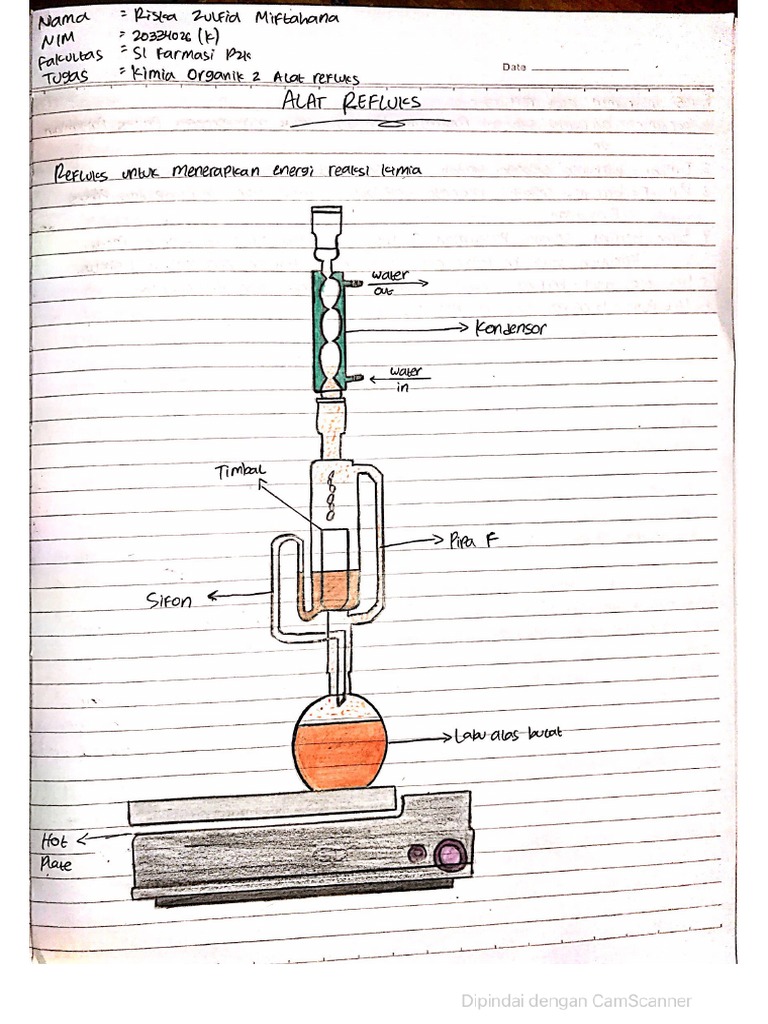 Nama : Riska Zulfid Miftahana
NIM : 20334026 (K)
Fakultas : S1 Farmasi P2K
Tugas : Kimia Organik 2 Alat refluks
Date
ALAT REFLUKS
Refluks untuk menerapkan energi reaksi kimia
water
out
Kondensor
water
in
Timbal
Pipa F
Sifon
Labu alas bulat
Hot
Plate
Dipindai dengan CamScanner